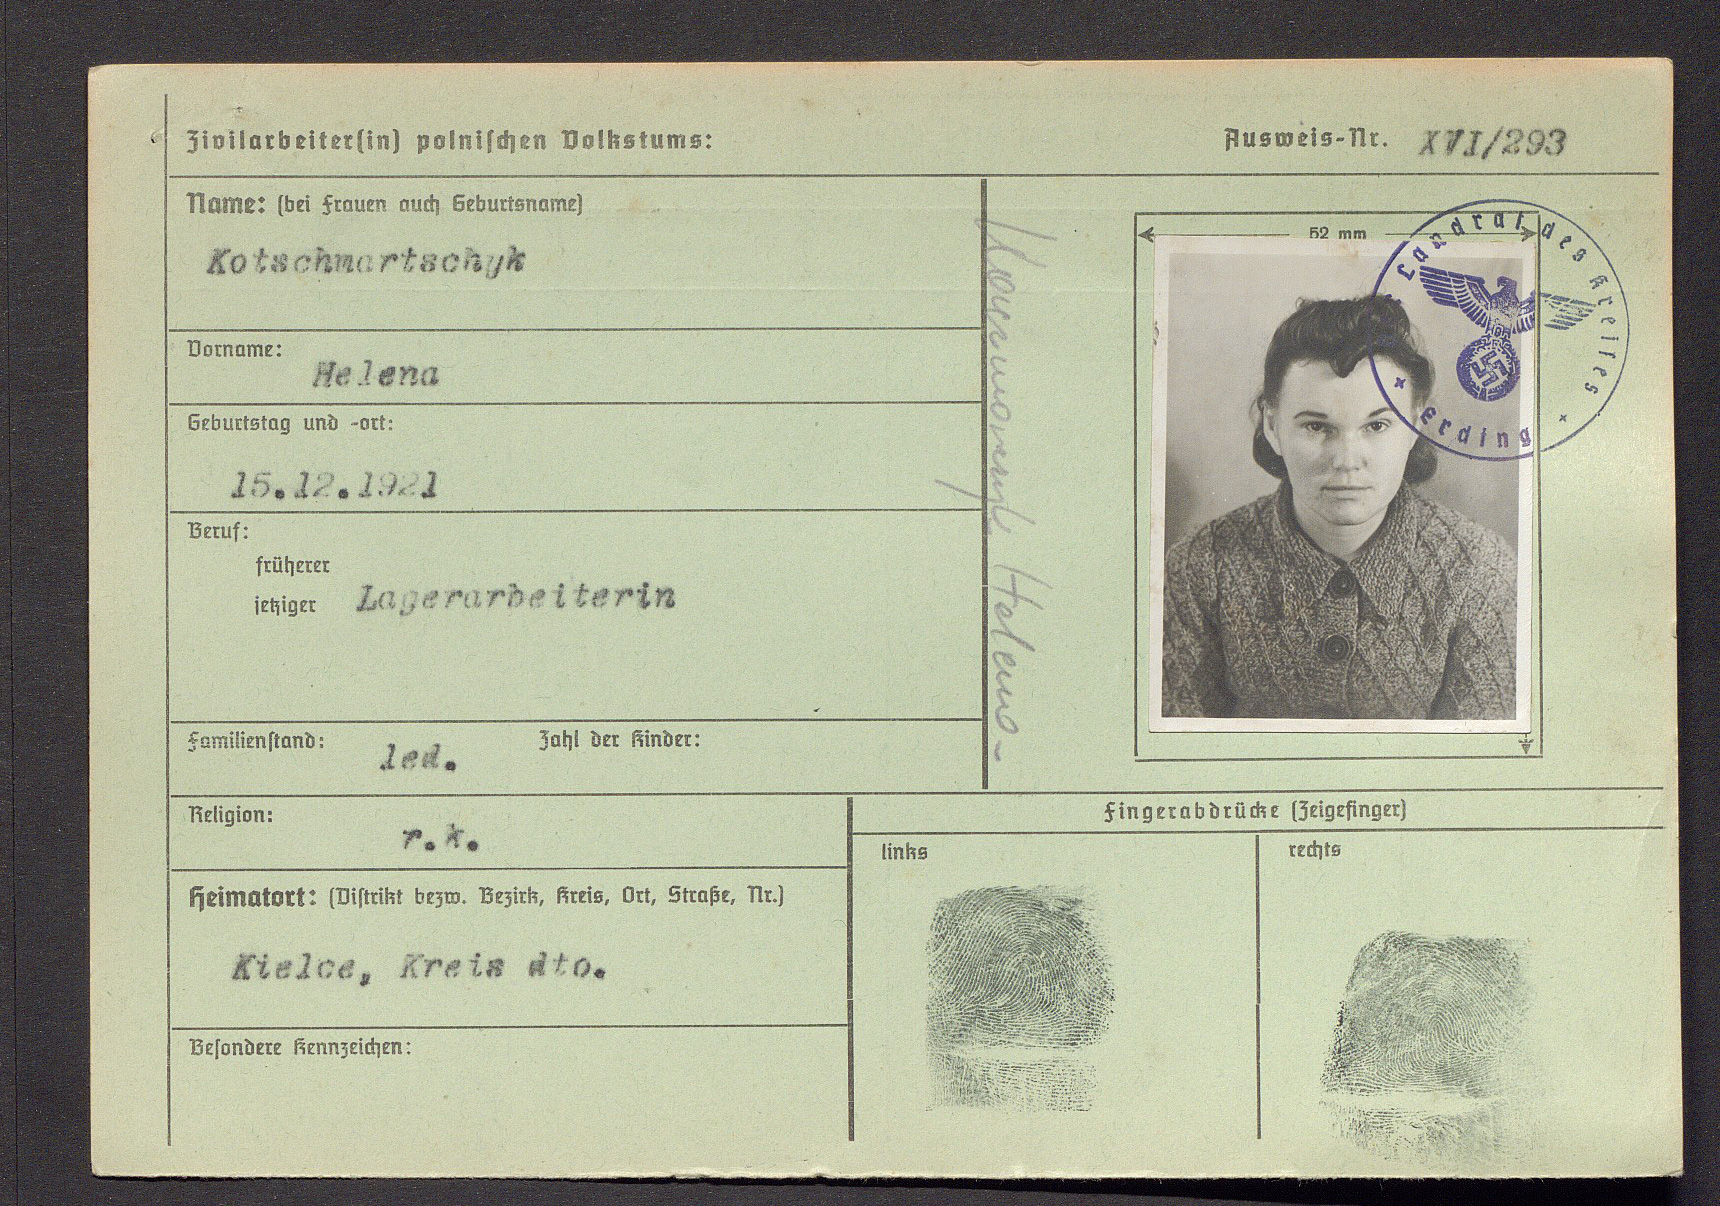 Zivilarbeiter(in) polnischen Volkstums:
Ausweis-Nr. XVI/293
Name: (bei Frauen auch Geburtsname)
Kotschmartschyk
Vorname:
Helena
Geburtstag und -ort:
15.12.1921
Beruf:
früherer
jetziger Lagerarbeiterin
Familienstand: led. Zahl der Kinder:
Religion:
r.k.
Heimatort: (Distrikt bezw. Bezirk, Kreis, Ort, Straße, Nr.)
Kielce, Kreis dto.
Besondere Kennzeichen:
Helena
52 mm
Landrat des Kreises
Erding
Fingerabdrücke (Zeigefinger)
links
rechts